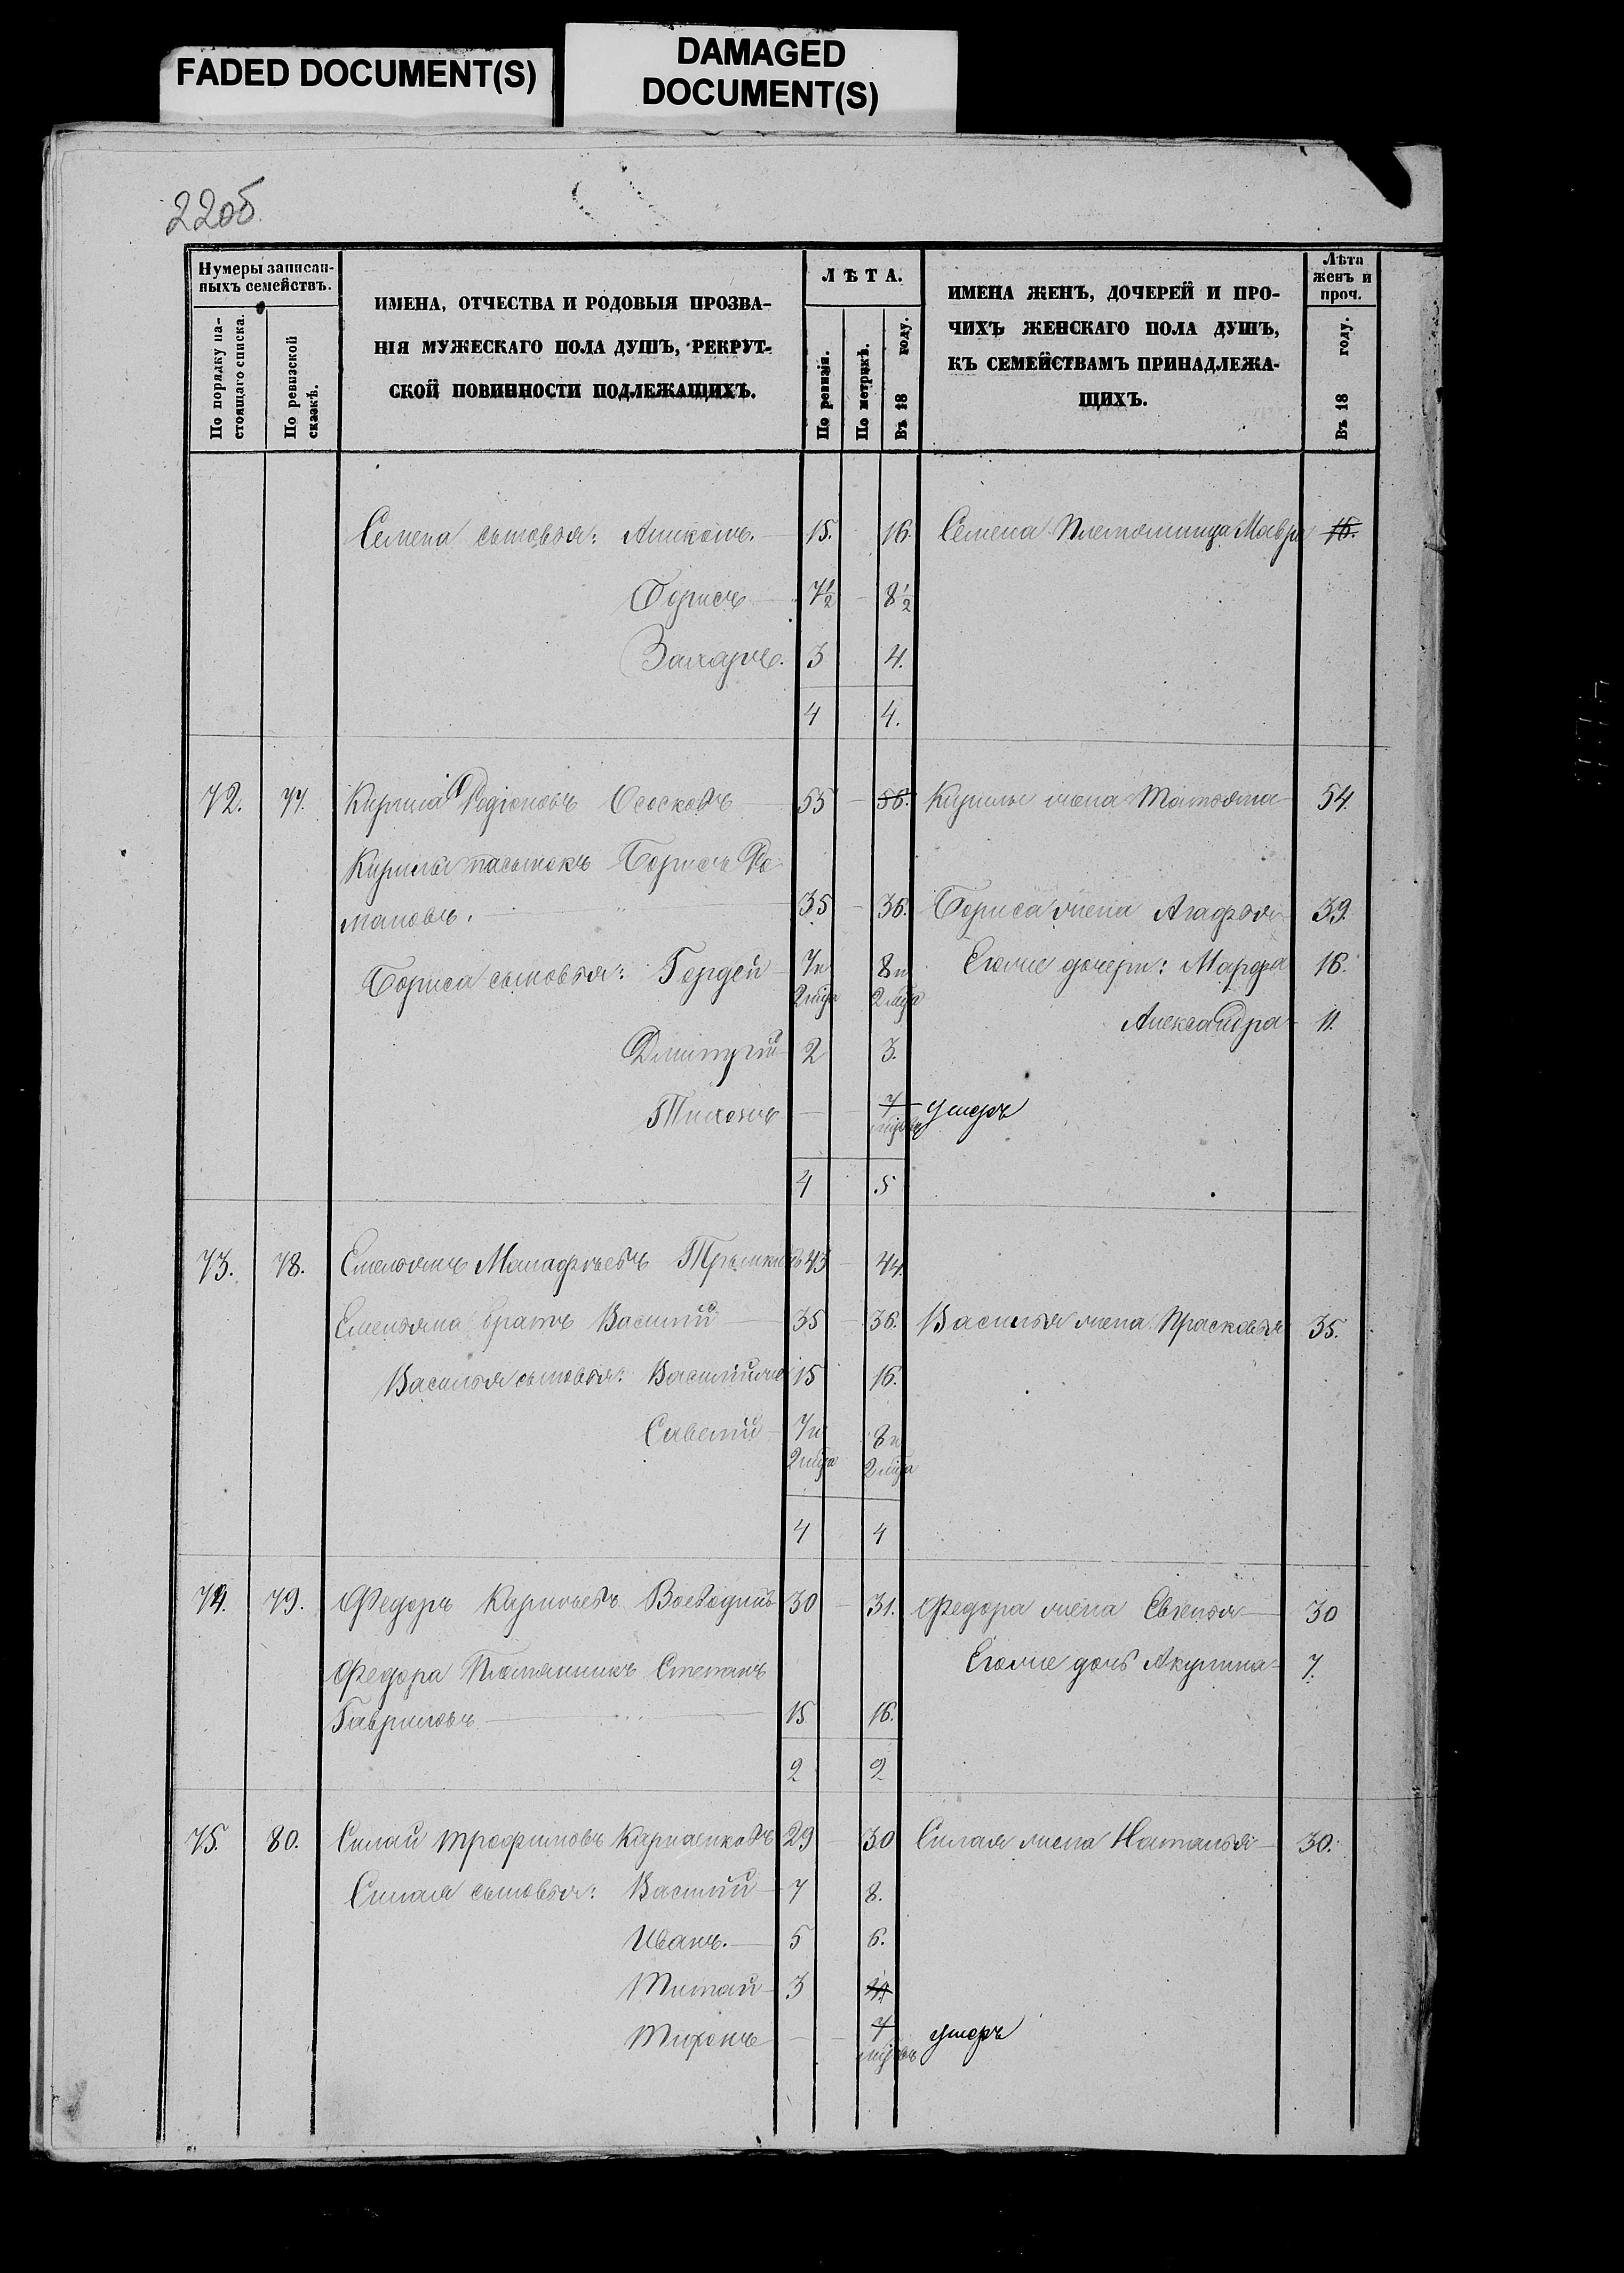 FADED DOCUMENT(S)
DAMAGED
DOCUMENT(S)
22об
Нумеры записан-
ныхъ семействъ.
По порядку на-
стоящаго списка.
По ревизской
сказкѣ.
ИМЕНА, ОТЧЕСТВА И РОДОВЫЯ ПРОЗВА-
НІЯ МУЖЕСКАГО ПОЛА ДУШЪ, РЕКРУТ-
СКОЙ ПОВИННОСТИ ПОДЛЕЖАЩИХЪ.
ЛѢТА.
По ревизіи.
По метрикѣ.
Въ 18 году.
ИМЕНА ЖЕНЪ, ДОЧЕРЕЙ И ПРО-
ЧИХЪ ЖЕНСКАГО ПОЛА ДУШЪ,
КЪ СЕМЕЙСТВАМЪ ПРИНАДЛЕЖА-
ЩИХЪ.
Лѣта
женъ и
проч.
Въ 18 году.
Семена сыновья: 15. 16. Семена Племянница Мавра 16.
Борисъ 7½ 8½
Захаръ. 3 4.
4 4.
72. 77. Кирила Родіоновъ 55 56. Кирилы жена Татьяна 54.
Кирилы пасынокъ Борисъ Ро-
мановъ. 35 36. Бориса жена Агафья 39.
Бориса сыновья: Гордей 7 и 8 и Егоже дочери: Марфа 16.
2 мѣца 2 мѣца
Александра 11.
Дмитрій 2 3.
Тихонъ 7 умеръ
4 5
73. 78. Емельянъ 43 44.
Емельяна братъ Василій 35 36. Василья жена Прасковья 35.
Василья сыновья: Василій 15 16.
Савелій 7 и 8 и
2 мѣца 2 мѣца
4 4
74. 79. Федоръ Воеводинъ 30 31. Федора жена Евгенья 30
Егоже дочь Акулина 7.
Федора Племянникъ Степанъ
Гавриловъ 15 16.
2 2
75. 80. Силай Трофимовъ 29 30 Силая жена Наталья 30.
Силая сыновья: Василій 7 8.
Иванъ. 5 6.
3 4
7 умеръ